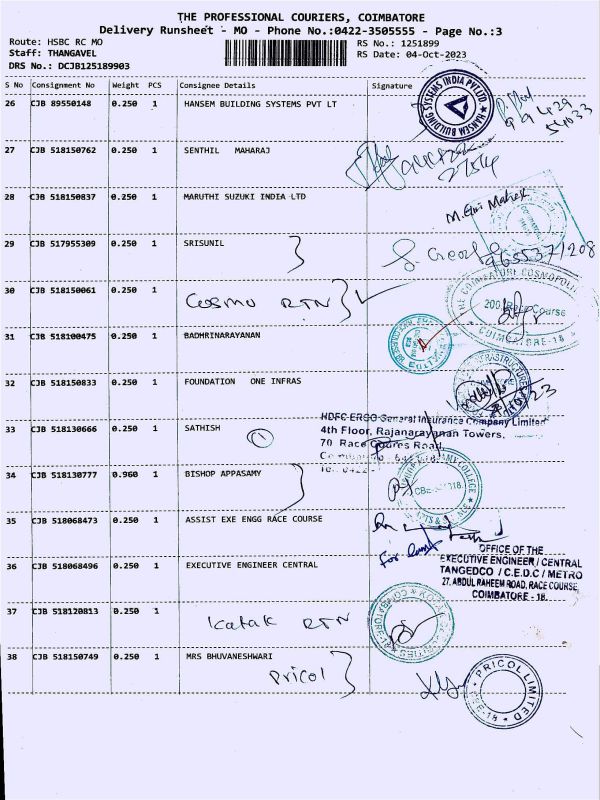 THE PROFESSIONAL COURIERS, COIMBATORE
Delivery Runsheet - MO - Phone No.:0422-3505555 - Page No.:3
Route: HSBC RC MO RS No.: 1251899
Staff: THANGAVEL RS Date: 04-Oct-2023
DRS No.: DCJB125189903
S No Consignment No Weight Pcs Consignee Details Signature
26 CJB 89550148 0.250 1 HANSEM BUILDING SYSTEMS PVT LT
HANSEM BUILDING SYSTEMS INDIA PVT LTD.
27 CJB 518150762 0.250 1 SENTHIL MAHARAJ
28 CJB 518150837 0.250 1 MARUTHI SUZUKI INDIA LTD
29 CJB 517955309 0.250 1 SRISUNIL
9655371208
30 CJB 518150061 0.250 1 Cosmo RTN
COIMBATORE COSMOPOLITAN
200, Race Course
COIMBATORE-18
31 CJB 518100475 0.250 1 BADHRINARAYANAN
32 CJB 518150833 0.250 1 FOUNDATION ONE INFRAS
INFRASTRUCTURE
33 CJB 518130666 0.250 1 SATHISH
HDFC ERGO General Insurance Company Limited
4th Floor, Rajanarayanan Towers,
70 Race Course Road,
34 CJB 518130777 0.960 1 BISHOP APPASAMY
35 CJB 518068473 0.250 1 ASSIST EXE ENGG RACE COURSE
36 CJB 518068496 0.250 1 EXECUTIVE ENGINEER CENTRAL
OFFICE OF THE
EXECUTIVE ENGINEER / CENTRAL
TANGEDCO / C.E.D.C / METRO
27, ABDUL RAHEEM ROAD, RACE COURSE
COIMBATORE - 18.
37 CJB 518120813 0.250 1 Kotak RTN
38 CJB 518150749 0.250 1 MRS BHUVANESHWARI
Pricol
PRICOL LIMITED
CBE-18